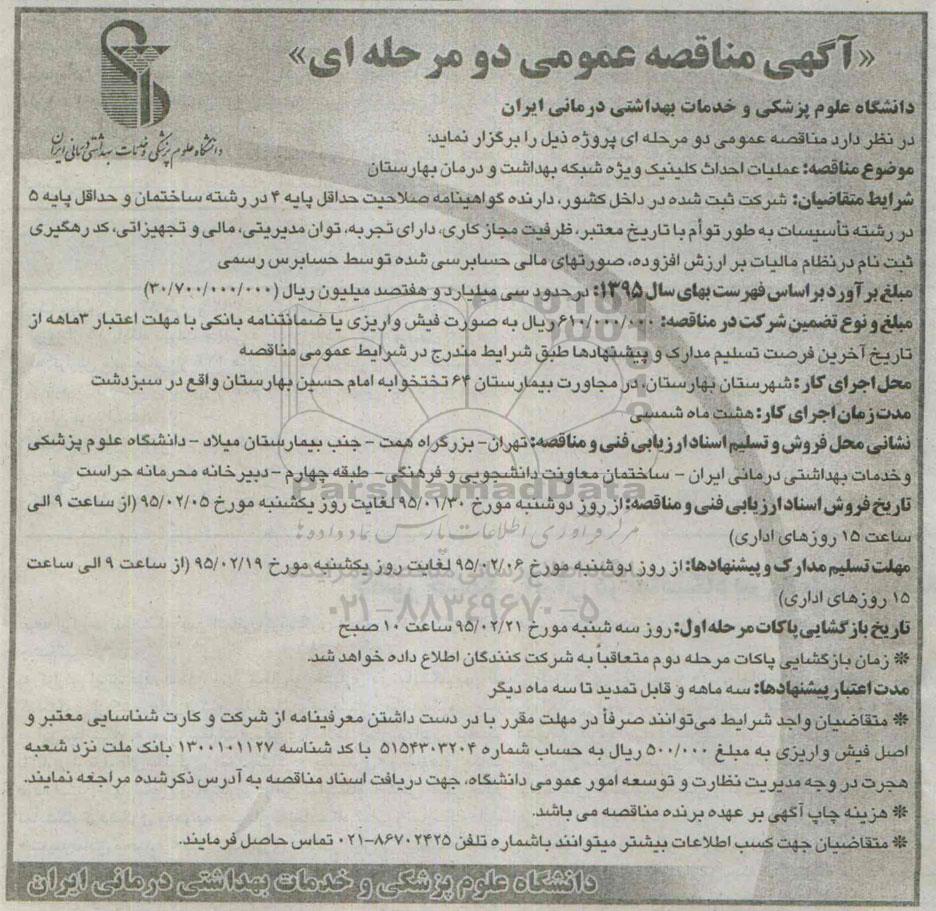 «آگهی مناقصه عمومی دو مرحله ای»
دانشگاه علوم پزشکی و خدمات بهداشتی درمانی ایران
دانشگاه علوم پزشکی و خدمات بهداشتی درمانی ایران
در نظر دارد مناقصه عمومی دو مرحله ای پروژه ذیل را برگزار نماید:
موضوع مناقصه: عملیات احداث کلینیک ویژه شبکه بهداشت و درمان بهارستان
شرایط متقاضیان: شرکت ثبت شده در داخل کشور، دارنده گواهینامه صلاحیت حداقل پایه ۴ در رشته ساختمان و حداقل پایه ۵
در رشته تأسیسات به طور توأم با تاریخ معتبر، ظرفیت مجاز کاری، دارای تجربه، توان مدیریتی، مالی و تجهیزاتی، کد رهگیری
ثبت نام در نظام مالیات بر ارزش افزوده، صورتهای مالی حسابرسی شده توسط حسابرس رسمی
مبلغ برآورد بر اساس فهرست بهای سال ۱۳۹۵: در حدود سی میلیارد و هفتصد میلیون ریال (۳۰/۷۰۰/۰۰۰/۰۰۰)
مبلغ و نوع تضمین شرکت در مناقصه: ۶۱۰/۰۰۰/۰۰۰ ریال به صورت فیش واریزی یا ضمانتنامه بانکی با مهلت اعتبار ۳ماهه از
تاریخ آخرین فرصت تسلیم مدارک و پیشنهادها طبق شرایط مندرج در شرایط عمومی مناقصه
محل اجرای کار: شهرستان بهارستان، در مجاورت بیمارستان ۶۴ تختخوابه امام حسین بهارستان واقع در سبزدشت
مدت زمان اجرای کار: هشت ماه شمسی
نشانی محل فروش و تسلیم اسناد ارزیابی فنی و مناقصه: تهران- بزرگراه همت - جنب بیمارستان میلاد - دانشگاه علوم پزشکی
و خدمات بهداشتی درمانی ایران - ساختمان معاونت دانشجویی و فرهنگی - طبقه چهارم - دبیرخانه محرمانه حراست
ParsNamadData
تاریخ فروش اسناد ارزیابی فنی و مناقصه: از روز دوشنبه مورخ ۹۵/۰۱/۳۰ لغایت روز یکشنبه مورخ ۹۵/۰۲/۰۵ (از ساعت ۹ الی
ساعت ۱۵ روزهای اداری)
مرکز فرآوری اطلاعات پارس نماد داده ها
مهلت تسلیم مدارک و پیشنهادها: از روز دوشنبه مورخ ۹۵/۰۲/۰۶ لغایت روز یکشنبه مورخ ۹۵/۰۲/۱۹ (از ساعت ۹ الی ساعت
۱۵ روزهای اداری)
۰۲۱-۸۸۳۴۹۶۷۰-۵
تاریخ بازگشایی پاکات مرحله اول: روز سه شنبه مورخ ۹۵/۰۲/۲۱ ساعت ۱۰ صبح
* زمان بازگشایی پاکات مرحله دوم متعاقباً به شرکت کنندگان اطلاع داده خواهد شد.
مدت اعتبار پیشنهادها: سه ماهه و قابل تمدید تا سه ماه دیگر
* متقاضیان واجد شرایط می‌توانند صرفاً در مهلت مقرر با در دست داشتن معرفینامه از شرکت و کارت شناسایی معتبر و
اصل فیش واریزی به مبلغ ۵۰۰/۰۰۰ ریال به حساب شماره ۵۱۵۴۳۰۳۲۰۴ با کد شناسه ۱۳۰۰۱۰۱۱۲۷ بانک ملت نزد شعبه
هجرت در وجه مدیریت نظارت و توسعه امور عمومی دانشگاه، جهت دریافت اسناد مناقصه به آدرس ذکرشده مراجعه نمایند.
* هزینه چاپ آگهی بر عهده برنده مناقصه می باشد.
* متقاضیان جهت کسب اطلاعات بیشتر میتوانند باشماره تلفن ۸۶۷۰۲۴۲۵-۰۲۱ تماس حاصل فرمایند.
دانشگاه علوم پزشکی و خدمات بهداشتی درمانی ایران